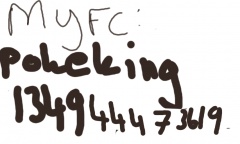 MyFC:
Pokeking
1349 444 73619